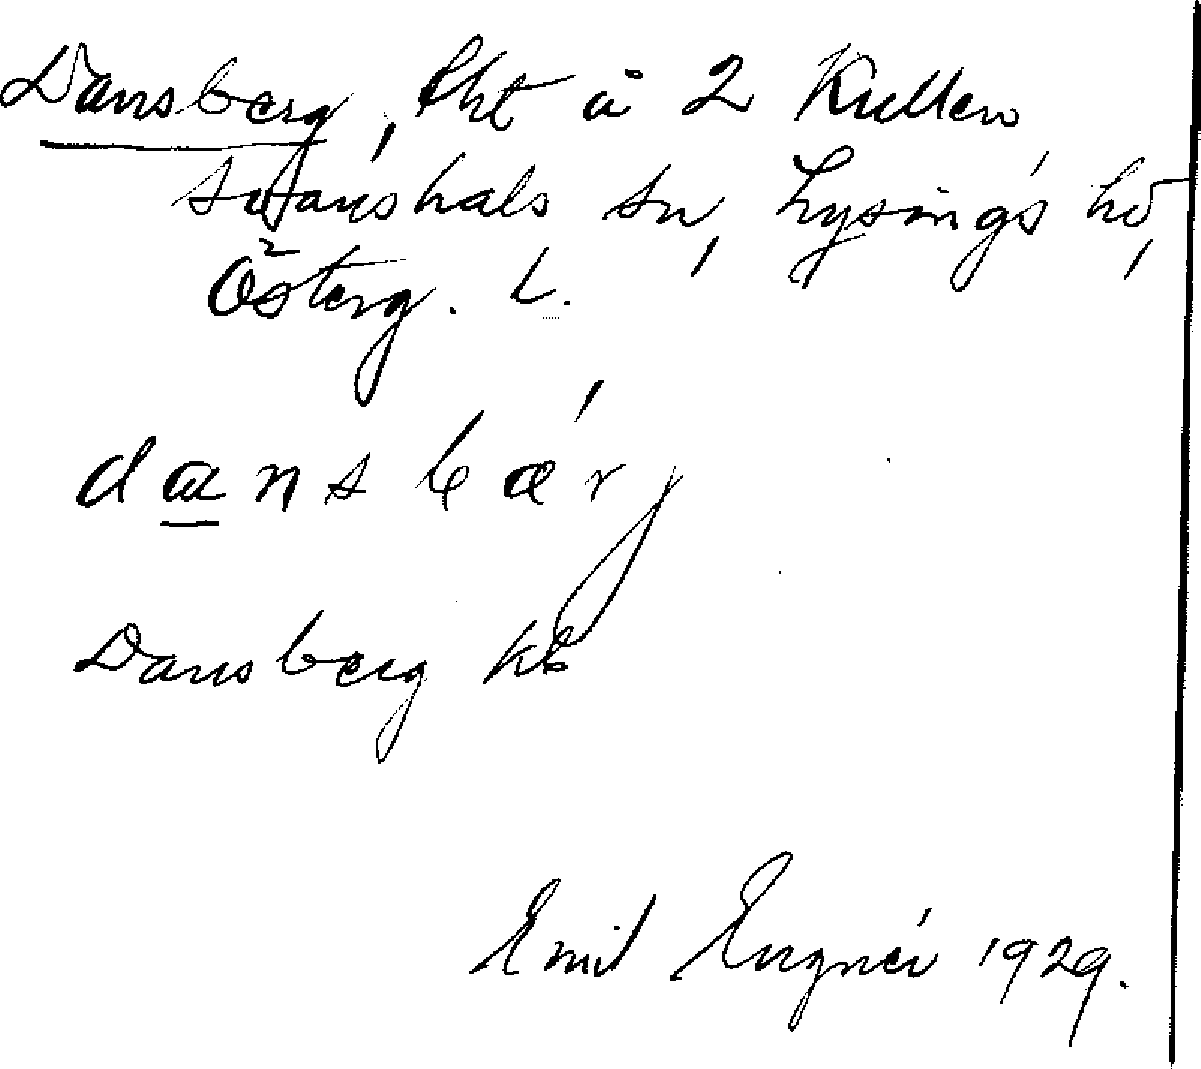 Dansberg, lht å 2 Kullen
Svanshals sn, Lysings hd,
Österg. L.
dansbærj
Dansberg kb
Emil Engnér 1929.